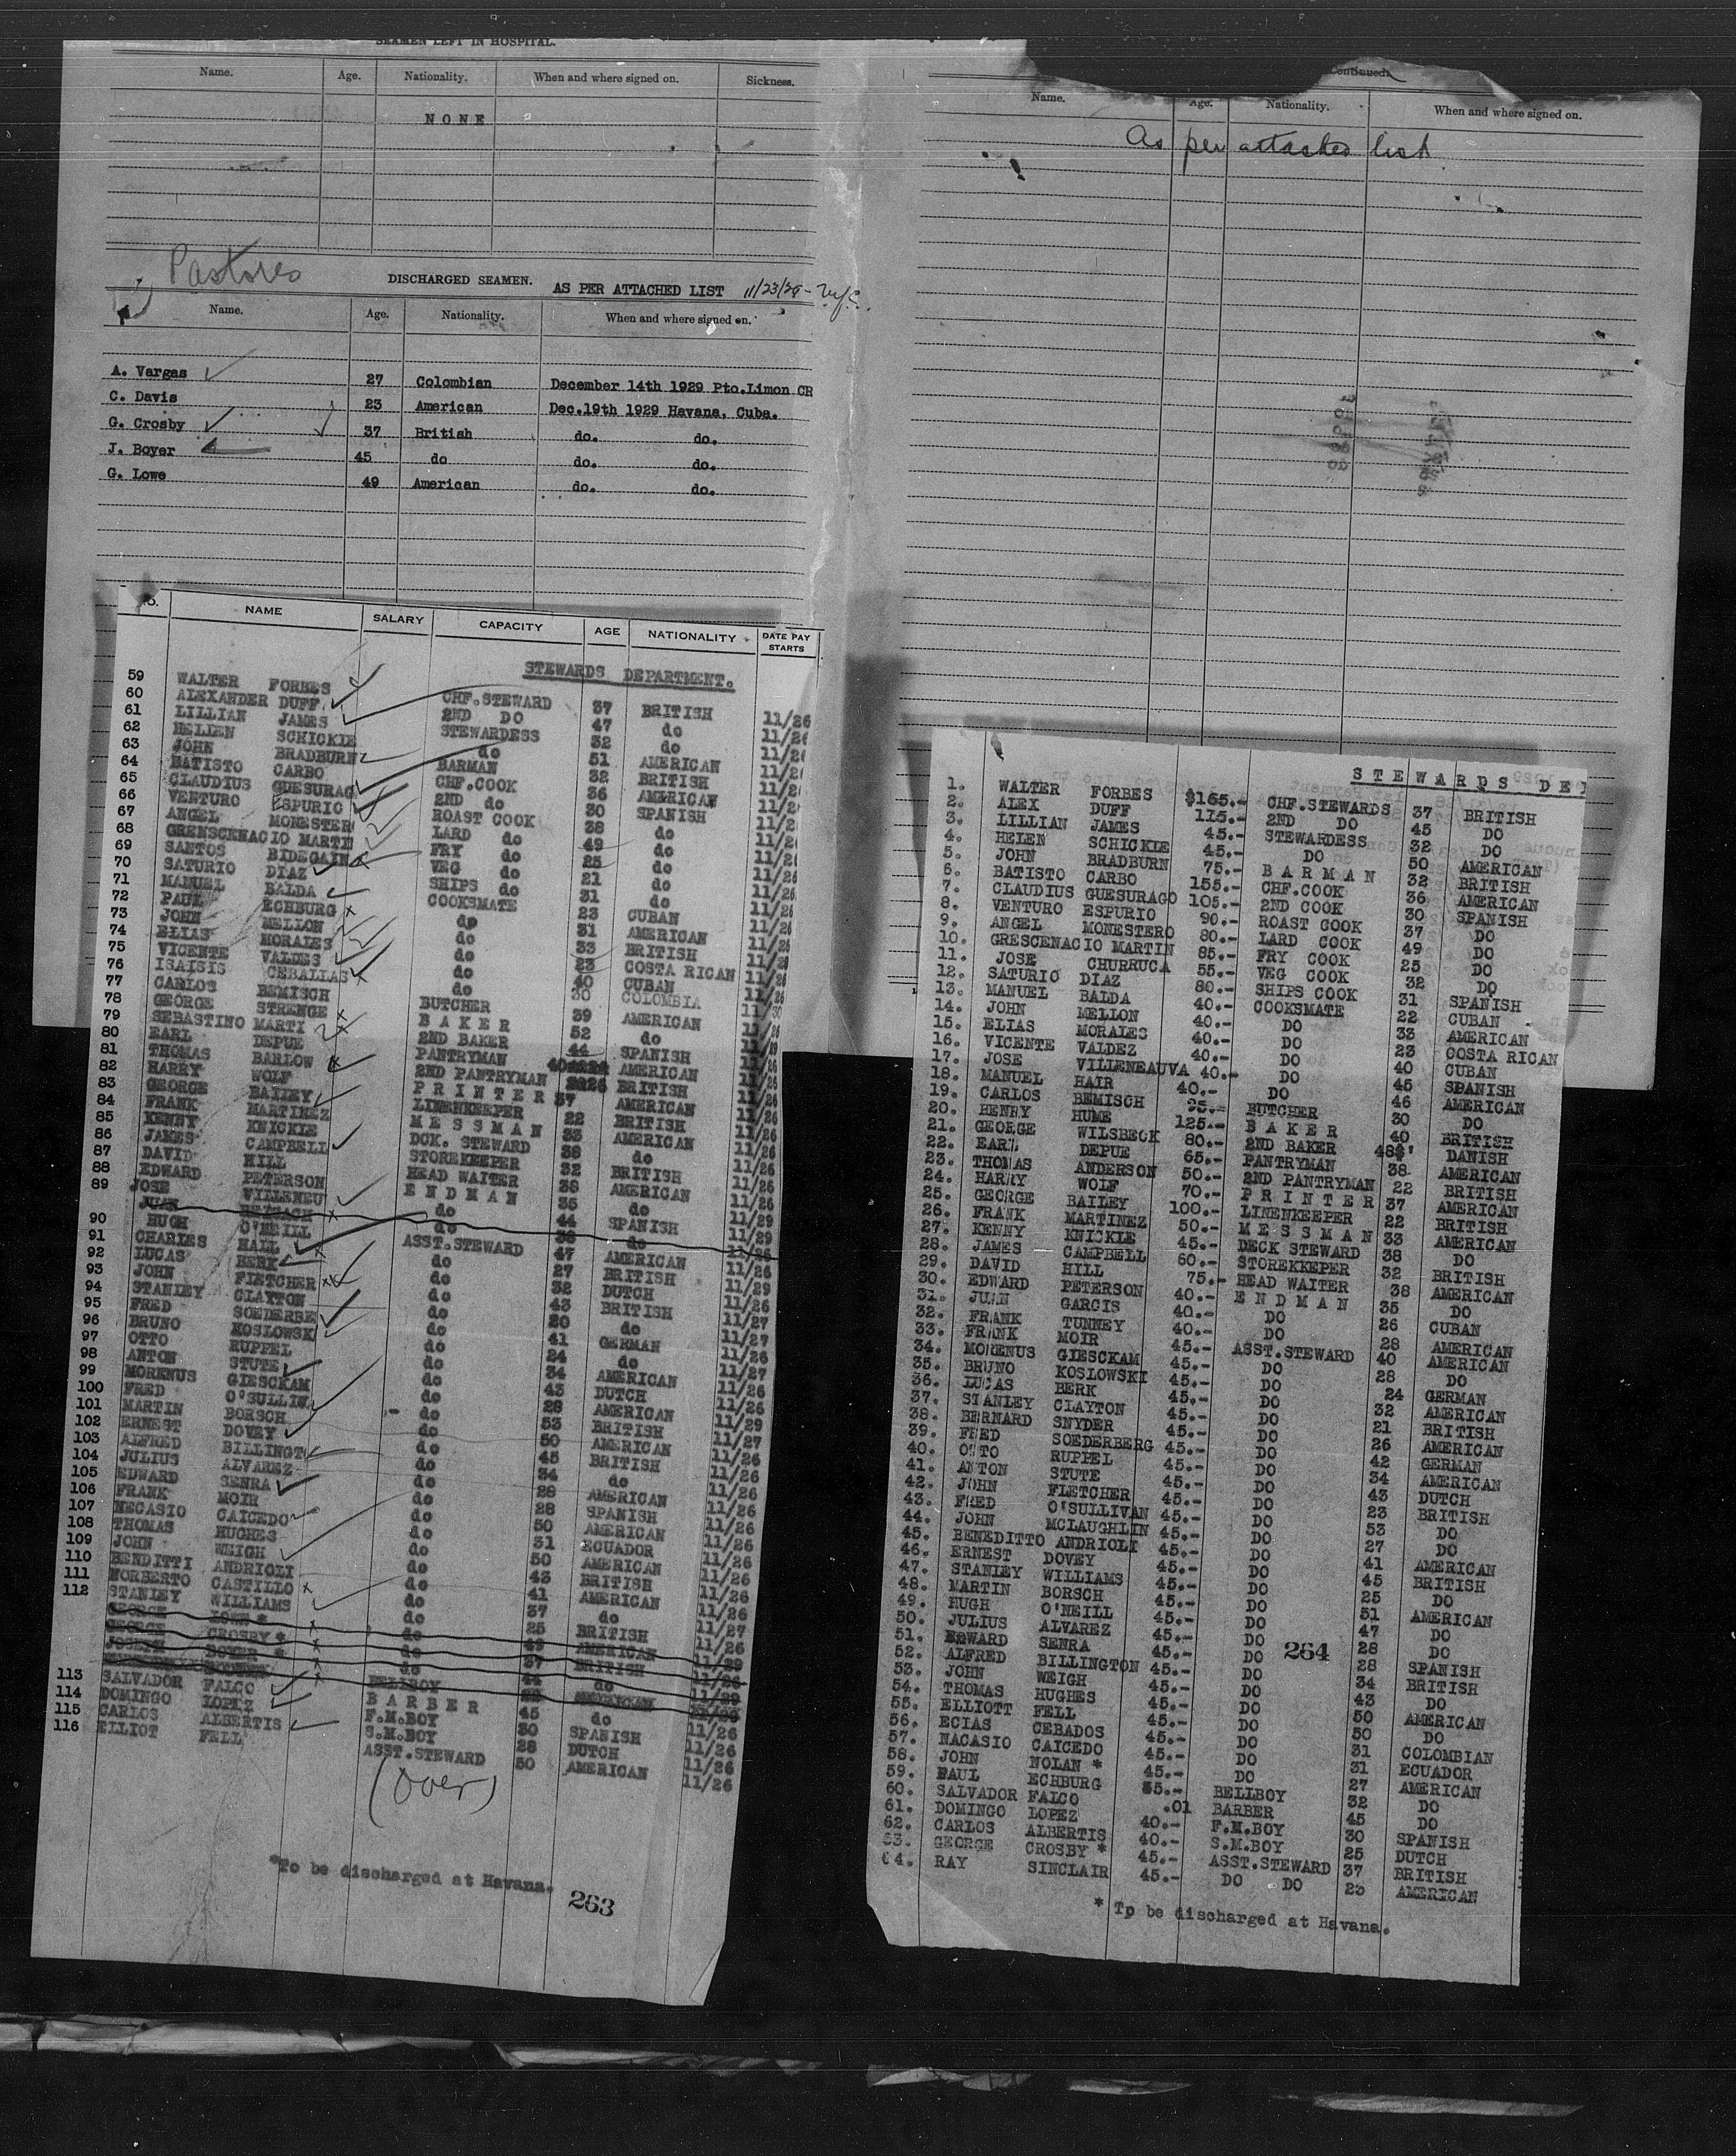 SEAMEN LEFT IN HOSPITAL.
Name. Age. Nationality. When and where signed on. Sickness.
NONE
Pastores
DISCHARGED SEAMEN. AS PER ATTACHED LIST 11/23/29
Name. Age. Nationality. When and where signed on.
A. Vargas 27 Colombian December 14th 1929 Pto.Limon CR
C. Davis 23 American Dec.19th 1929 Havana, Cuba.
G. Crosby 37 British do. do.
J. Boyer 45 do do. do.
G. Lowe 49 American do. do.
NO. NAME SALARY CAPACITY AGE NATIONALITY DATE PAY STARTS
STEWARDS DEPARTMENT.
59 WALTER FORBES CHF.STEWARD 37 BRITISH 11/26
60 ALEXANDER DUFF 2ND DO 47 do 11/26
61 LILLIAN JAMES STEWARDESS 32 do 11/26
62 HELLEN SCHICKIE do 51 AMERICAN 11/2
63 JOHN BRADBURN BARMAN 32 BRITISH 11/2
64 BATISTO CARBO CHF.COOK 36 AMERICAN 11/2
65 CLAUDIUS GUESURAG 2ND do 30 SPANISH 11/2
66 VENTURO ESPURIO ROAST COOK 38 do 11/2
67 ANGEL MONESTER LARD do 49 do 11/26
68 GRENSCENACIO MARTI FRY do 25 do 11/26
69 SANTOS BIDEGAIN VEG do 21 do 11/26
70 SATURIO DIAZ SHIPS do 31 do 11/26
71 MANUEL BALDA COOKSMATE 23 CUBAN 11/26
72 PAUL ECHBURG do 31 AMERICAN 11/26
73 JOHN MELLON do 33 BRITISH 11/26
74 ELIAS MORALES do 23 COSTA RICAN 11/26
75 VICENTE VALDES do 40 CUBAN 11/26
76 ISAISIS CEBALLAS do 30 COLOMBIA 11/30
77 CARLOS BEMISCH BUTCHER 39 AMERICAN 11/26
78 GEORGE STRENGE BAKER 52 do 11/29
79 SEBASTINO MARTI 2ND BAKER 44 SPANISH 11/26
80 EARL DEPUE PANTRYMAN AMERICAN 11/26
81 THOMAS BARLOW 2ND PANTRYMAN BRITISH 11/26
82 HARRY WOLF PRINTER 37 AMERICAN 11/26
83 GEORGE BAILEY LINENKEEPER 22 BRITISH 11/26
84 FRANK MARTINEZ MESSMAN 33 AMERICAN 11/26
85 KENNY KNICKLE DCK. STEWARD 38 do 11/26
86 JAMES CAMPBELL STOREKEEPER 32 BRITISH 11/26
87 DAVID HILL HEAD WAITER 38 AMERICAN 11/26
88 EDWARD PETERSON ENDMAN 35 do 11/29
89 JOSE VILLENEU do 44 SPANISH 11/29
JUAN do 38 do 11/26
90 HUGH O'NEILL ASST.STEWARD 47 AMERICAN 11/26
91 CHARLES HALL do 27 BRITISH 11/29
92 LUCAS BERK do 32 DUTCH 11/26
93 JOHN FLETCHER do 43 BRITISH 11/27
94 STANLEY CLAYTON do 20 do 11/27
95 FRED SOEDERBE do 41 GERMAN 11/26
96 BRUNO KOSLOWSK do 24 do 11/27
97 OTTO RUPPEL do 34 AMERICAN 11/26
98 ANTON STUTE do 43 DUTCH 11/26
99 MORENUS GIESCKAM do 28 AMERICAN 11/29
100 FRED O'SULLIN do 53 BRITISH 11/27
101 MARTIN BORSCH do 50 AMERICAN 11/26
102 ERNEST DOVEY do 45 BRITISH 11/26
103 ALFRED BILLINGT do 34 do 11/26
104 JULIUS ALVAREZ do 28 AMERICAN 11/26
105 EDWARD SENRA do 28 SPANISH 11/26
106 FRANK MOIR do 50 AMERICAN 11/26
107 NECASIO CAICEDO do 31 ECUADOR 11/26
108 THOMAS HUGHES do 50 AMERICAN 11/26
109 JOHN WEIGH do 43 BRITISH 11/26
110 BENDITTI ANDRIOLI do 41 AMERICAN 11/26
111 NORBERTO CASTILLO do 37 do 11/27
112 STANLEY WILLIAMS do 25 BRITISH 11/26
GEORGE LOWE * do 49 AMERICAN 11/29
GEORGE CROSBY * do 37 BRITISH 11/26
JOSEPH BOYER * do 44 do 11/29
BELLBOY AMERICAN
113 SALVADOR FALCO BARBER 45 do 11/26
114 DOMINGO LOPEZ F.M.BOY 30 SPANISH 11/26
115 CARLOS ALBERTIS S.M.BOY 28 DUTCH 11/26
116 ELLIOT FELL ASST.STEWARD 50 AMERICAN 11/26
(over)
*To be discharged at Havana.
263
Continued.
Name. Age. Nationality. When and where signed on.
As per attached list
STEWARDS DE
1. WALTER FORBES $165.- CHF.STEWARDS 37 BRITISH
2. ALEX DUFF 115.- 2ND DO 45 DO
3. LILLIAN JAMES 45.- STEWARDESS 32 DO
4. HELEN SCHICKIE 45.- DO 50 AMERICAN
5. JOHN BRADBURN 75.- BARMAN 32 BRITISH
6. BATISTO CARBO 155.- CHF.COOK 36 AMERICAN
7. CLAUDIUS GUESURAGO 105.- 2ND COOK 30 SPANISH
8. VENTURO ESPURIO 90.- ROAST COOK 37 DO
9. ANGEL MONESTERO 80.- LARD COOK 49 DO
10. GRESCENACIO MARTIN 85.- FRY COOK 25 DO
11. JOSE CHURRUCA 55.- VEG COOK 32 DO
12. SATURIO DIAZ 80.- SHIPS COOK 31 SPANISH
13. MANUEL BALDA 40.- COOKSMATE 22 CUBAN
14. JOHN MELLON 40.- DO 33 AMERICAN
15. ELIAS MORALES 40.- DO 23 COSTA RICAN
16. VICENTE VALDEZ 40.- DO 40 CUBAN
17. JOSE VILLENEAUVA 40.- DO 45 SPANISH
18. MANUEL HAIR 40.- DO 46 AMERICAN
19. CARLOS BEMISCH 95.- BUTCHER 30 DO
20. HENRY HUME 125.- BAKER 40 BRITISH
21. GEORGE WILSBECK 80.- 2ND BAKER 48 DANISH
22. EARL DEPUE 65.- PANTRYMAN 38 AMERICAN
23. THOMAS ANDERSON 50.- 2ND PANTRYMAN 22 BRITISH
24. HARRY WOLF 70.- PRINTER 37 AMERICAN
25. GEORGE BAILEY 100.- LINENKEEPER 22 BRITISH
26. FRANK MARTINEZ 50.- MESSMAN 33 AMERICAN
27. KENNY KNICKLE 45.- DECK STEWARD 38 DO
28. JAMES CAMPBELL 60.- STOREKKEPER 32 BRITISH
29. DAVID HILL 75.- HEAD WAITER 38 AMERICAN
30. EDWARD PETERSON 40.- ENDMAN 35 DO
31. JUAN GARCIS 40.- DO 26 CUBAN
32. FRANK TUNNEY 40.- DO 28 AMERICAN
33. FRANK MOIR 45.- ASST.STEWARD 40 AMERICAN
34. MORENUS GIESCKAM 45.- DO 28 DO
35. BRUNO KOSLOWSKI 45.- DO 24 GERMAN
36. LUCAS BERK 45.- DO 32 AMERICAN
37. STANLEY CLAYTON 45.- DO 21 BRITISH
38. BERNARD SNYDER 45.- DO 26 AMERICAN
39. FRED SOEDERBERG 45.- DO 42 GERMAN
40. OTTO RUPPEL 45.- DO 34 AMERICAN
41. ANTON STUTE 45.- DO 43 DUTCH
42. JOHN FLETCHER 45.- DO 23 BRITISH
43. FRED O'SULLIVAN 45.- DO 53 DO
44. JOHN MCLAUGHLIN 45.- DO 27 DO
45. BENEDITTO ANDRIOLI 45.- DO 41 AMERICAN
46. ERNEST DOVEY 45.- DO 45 BRITISH
47. STANLEY WILLIAMS 45.- DO 25 DO
48. MARTIN BORSCH 45.- DO 51 AMERICAN
49. HUGH O'NEILL 45.- DO 47 DO
50. JULIUS ALVAREZ 45.- DO 28 DO
51. EDWARD SENRA 45.- DO 28 SPANISH
264
52. ALFRED BILLINGTON 45.- DO 34 BRITISH
53. JOHN WEIGH 45.- DO 43 DO
54. THOMAS HUGHES 45.- DO 50 AMERICAN
55. ELLIOTT FELL 45.- DO 50 DO
56. ECIAS CEBADOS 45.- DO 31 COLOMBIAN
57. NACASIO CAICEDO 45.- DO 31 ECUADOR
58. JOHN NOLAN * 45.- DO 27 AMERICAN
59. PAUL ECHBURG 35.- BELLBOY 32 DO
60. SALVADOR FALCO .01 BARBER 45 DO
61. DOMINGO LOPEZ 40.- F.M.BOY 30 SPANISH
62. CARLOS ALBERTIS 40.- S.M.BOY 25 DUTCH
63. GEORGE CROSBY * 45.- ASST.STEWARD 37 BRITISH
64. RAY SINCLAIR 45.- DO DO 23 AMERICAN
* Tp be discharged at Havana.